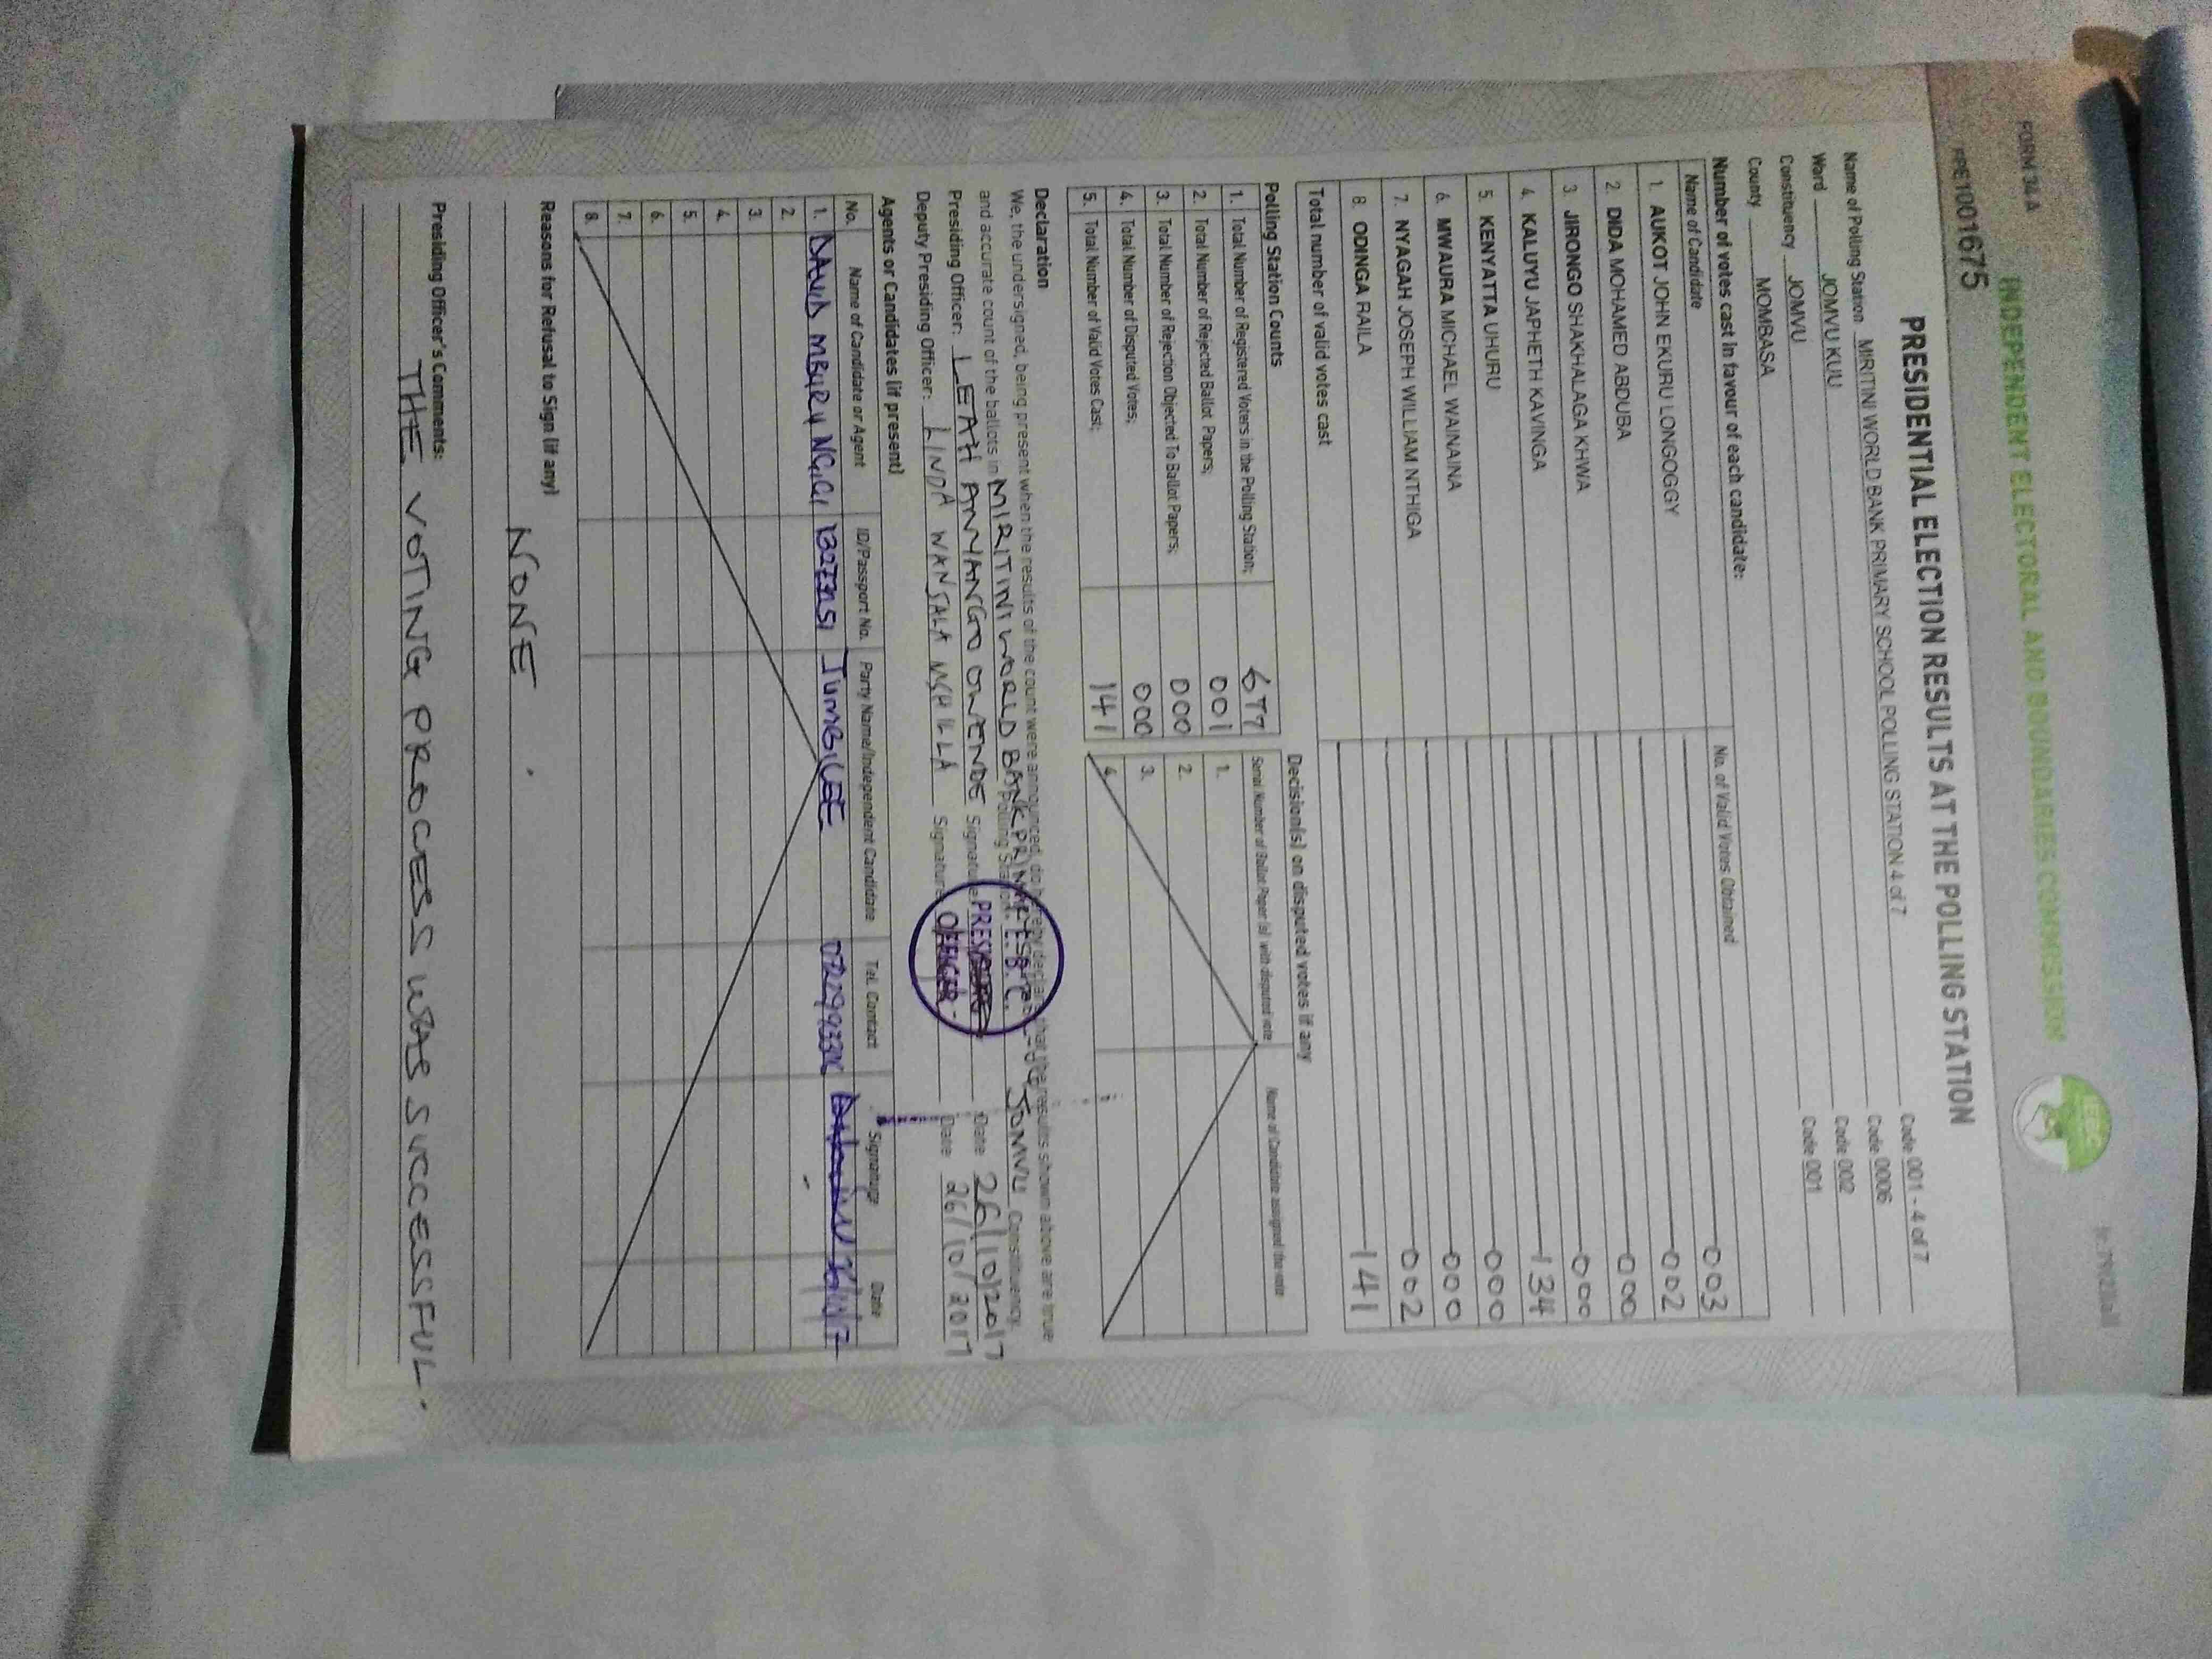 FORM 34A
INDEPENDENT ELECTORAL AND BOUNDARIES COMMISSION
IEBC
PRE1001675
PRESIDENTIAL ELECTION RESULTS AT THE POLLING STATION
Name of Polling Station MIRITINI WORLD BANK PRIMARY SCHOOL POLLING STATION 4 of 7 Code 001 - 4 of 7
Ward JOMVU KUU Code 0006
Constituency JOMVU Code 002
County MOMBASA Code 001
Number of votes cast in favour of each candidate:
Name of Candidate No. of Valid Votes Obtained
1. AUKOT JOHN EKURU LONGOGGY 003
2. DIDA MOHAMED ABDUBA 002
3. JIRONGO SHAKHALAGA KHWA 000
4. KALUYU JAPHETH KAVINGA 000
5. KENYATTA UHURU 134
6. MWAURA MICHAEL WAINAINA 000
7. NYAGAH JOSEPH WILLIAM NTHIGA 000
8. ODINGA RAILA 002
Total number of valid votes cast 141
Polling Station Counts
1. Total Number of Registered Voters in the Polling Station; 677
2. Total Number of Rejected Ballot Papers; 001
3. Total Number of Rejection Objected To Ballot Papers; 000
4. Total Number of Disputed Votes; 000
5. Total Number of Valid Votes Cast; 141
Decision(s) on disputed votes if any
Serial Number of Ballot Paper (s) with disputed vote Name of Candidate assigned the vote
1.
2.
3.
4.
Declaration
We, the undersigned, being present when the results of the count were announced, do hereby declare that the results shown above are true
and accurate count of the ballots in MIRITINI WORLD BANK PRI Polling Station. JOMVU Constituency.
Presiding Officer: LEAH ANYANGO OWENDE Signature Date 26/10/2017
Deputy Presiding Officer: LINDA WANJALA Signature Date 26/10/2017
I.E.B.C.
PRESIDING
OFFICER
Agents or Candidates (if present)
No. Name of Candidate or Agent ID/Passport No. Party Name/Independent Candidate Tel. Contact Signature Date
1. DAVID MBURU NGIGI JUMBILEE
2.
3.
4.
5.
6.
7.
8.
Reasons for Refusal to Sign (if any)
NONE
Presiding Officer's Comments:
THE VOTING PROCESS WAS SUCCESSFUL.